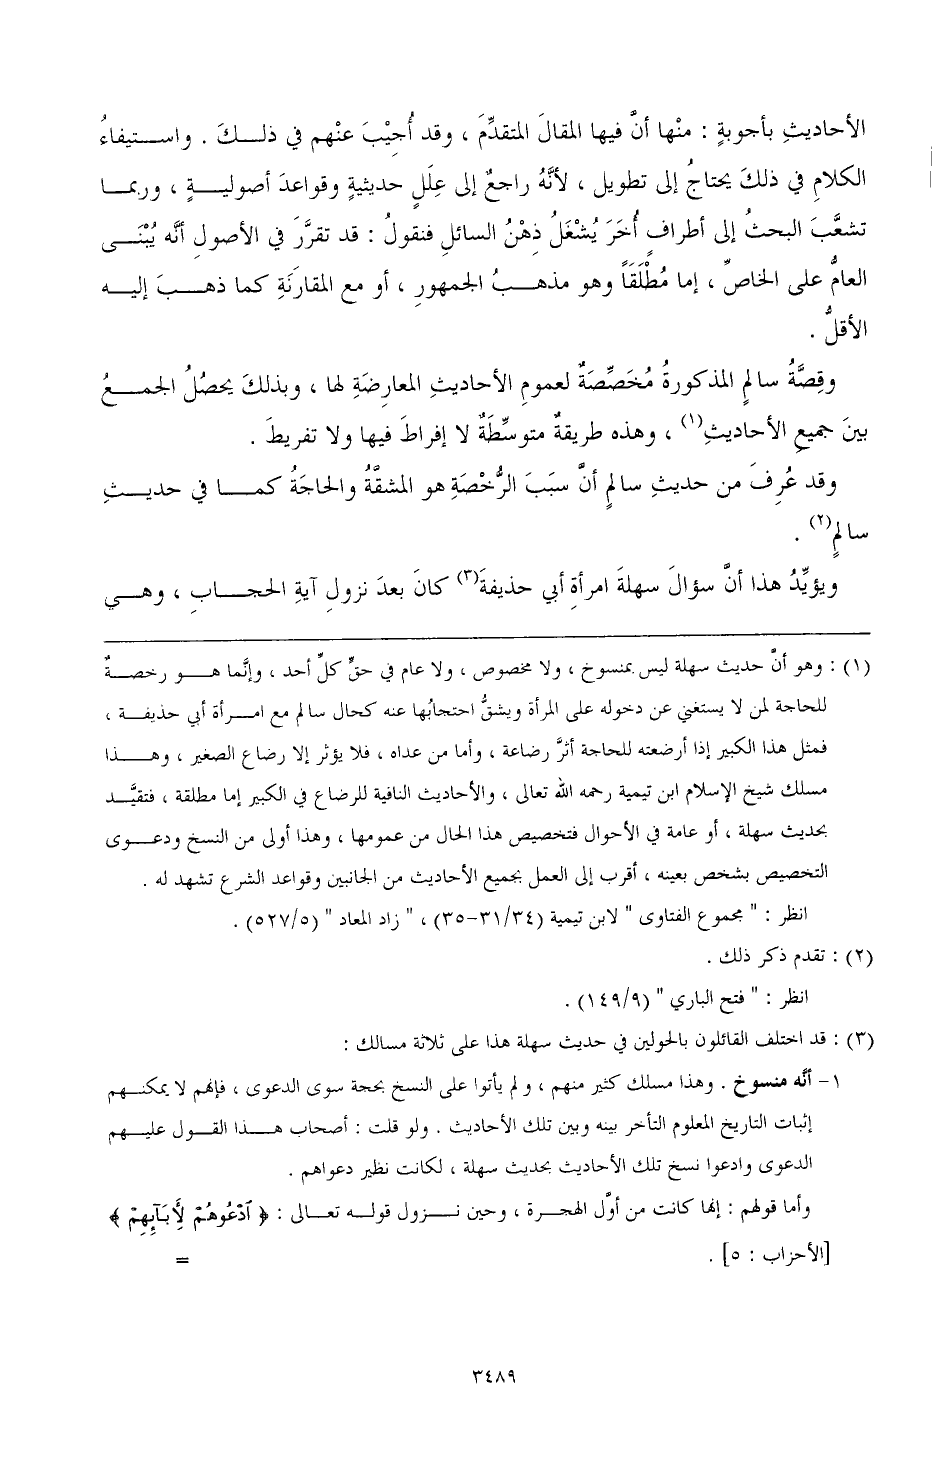 الأحاديثِ بأجوبةٍ : منْها أنَّ فيها المقالَ المتقدِّمَ ، وقد أُجيْبَ عنْهم في ذلـــكَ . واستيفاءُ
الكلام في ذلكَ يحتاجُ إلى تطويل ، لأنَّهُ راجعٌ إلى عِلَلٍ حديثيةٍ وقواعدَ أصوليـــةٍ ، وربمـا
تشعَّبَ البحثُ إلى أطرافٍ أُخَرَ يُشْغَلُ ذِهْنُ السائلِ فنقولُ : قد تقرَّرَ في الأصولِ أنَّه يُبْنَــى
العامُّ على الخاصِّ ، إما مُطْلَقَاً وهو مذهــبُ الجمهورِ ، أو مع المقارَنَةِ كما ذهــبَ إليــه
الأقلُّ .
وقِصَّةُ سالمٍ المذكورةُ مُخَصِّصَةٌ لعمومِ الأحاديثِ المعارضَةِ لها ، وبذلكَ يحصُلُ الجمــعُ
بينَ جميعِ الأحاديثِ(١) ، وهذه طريقةٌ متوسِّطَةٌ لا إفراطَ فيها ولا تفريطَ .
وقد عُرِفَ من حديثِ سالمٍ أنَّ سبَبَ الرُّخْصَةِ هو المشقَّةُ والحاجَةُ كمــا في حديــثِ
سالمٍ(٢) .
ويؤيِّدُ هذا أنَّ سؤالَ سهلةَ امرأةِ أبي حذيفةَ(٣) كانَ بعدَ نزولِ آيةِ الحجــابِ ، وهــي
(١) : وهو أنَّ حديث سهلة ليس بمنسوخ ، ولا مخصوص ، ولا عام في حقِّ كلِّ أحد ، وإنَّما هــو رخصــةٌ
للحاجة لمن لا يستغني عن دخوله على المرأة ويشقُّ احتجابُها عنه كحال سالم مع امــرأة أبي حذيفــة ،
فمثل هذا الكبير إذا أرضعته للحاجة أثَّر رضاعة ، وأما من عداه ، فلا يؤثر إلا رضاع الصغير ، وهــذا
مسلك شيخ الإسلام ابن تيمية رحمه الله تعالى ، والأحاديث النافية للرضاع في الكبير إما مطلقة ، فتقيَّــد
بحديث سهلة ، أو عامة في الأحوال فتخصيص هذا الحال من عمومها ، وهذا أولى من النسخ ودعــوى
التخصيص بشخص بعينه ، أقرب إلى العمل بجميع الأحاديث من الجانبين وقواعد الشرع تشهد له .
انظر : " مجموع الفتاوى " لابن تيمية (٣١/٣٤-٣٥) ، " زاد المعاد " (٥٢٧/٥) .
(٢) : تقدم ذكر ذلك .
انظر : " فتح الباري " (١٤٩/٩) .
(٣) : قد اختلف القائلون بالحولين في حديث سهلة هذا على ثلاثة مسالك :
١- أنَّه منسوخ . وهذا مسلك كثير منهم ، ولم يأتوا على النسخ بحجة سوى الدعوى ، فإنهم لا يمكنــهم
إثبات التاريخ المعلوم التأخر بينه وبين تلك الأحاديث . ولو قلت : أصحاب هــذا القــول عليــهم
الدعوى وادعوا نسخ تلك الأحاديث بحديث سهلة ، لكانت نظير دعواهم .
وأما قولهم : إنها كانت من أوَّل الهجــرة ، وحين نــزول قولــه تعــالى : ﴿ ٱدۡعُوهُمۡ لِأٓبَآئِهِمۡ ﴾
[الأحزاب : ٥] . =
٣٤٨٩